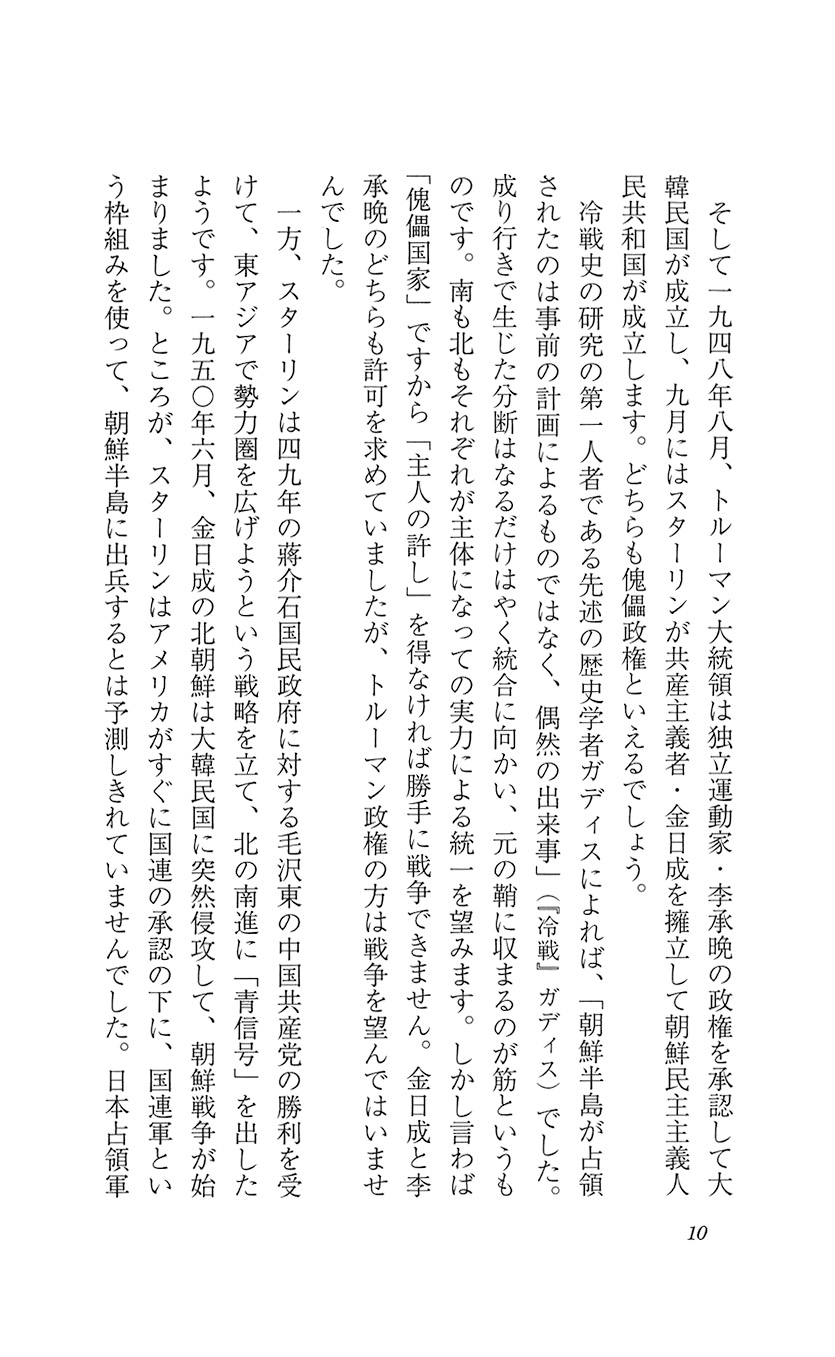 そして一九四八年八月、トルーマン大統領は独立運動家・李承晩の政権を承認して大
韓民国が成立し、九月にはスターリンが共産主義者・金日成を擁立して朝鮮民主主義人
民共和国が成立します。どちらも傀儡政権といえるでしょう。
冷戦史の研究の第一人者である先述の歴史学者ガディスによれば、「朝鮮半島が占領
されたのは事前の計画によるものではなく、偶然の出来事」（『冷戦』ガディス）でした。
成り行きで生じた分断はなるだけはやく統合に向かい、元の鞘に収まるのが筋というも
のです。南も北もそれぞれが主体になっての実力による統一を望みます。しかし言わば
「傀儡国家」ですから「主人の許し」を得なければ勝手に戦争できません。金日成と李
承晩のどちらも許可を求めていましたが、トルーマン政権の方は戦争を望んではいませ
んでした。
一方、スターリンは四九年の蔣介石国民政府に対する毛沢東の中国共産党の勝利を受
けて、東アジアで勢力圏を広げようという戦略を立て、北の南進に「青信号」を出した
ようです。一九五〇年六月、金日成の北朝鮮は大韓民国に突然侵攻して、朝鮮戦争が始
まりました。ところが、スターリンはアメリカがすぐに国連の承認の下に、国連軍とい
う枠組みを使って、朝鮮半島に出兵するとは予測しきれていませんでした。日本占領軍
10